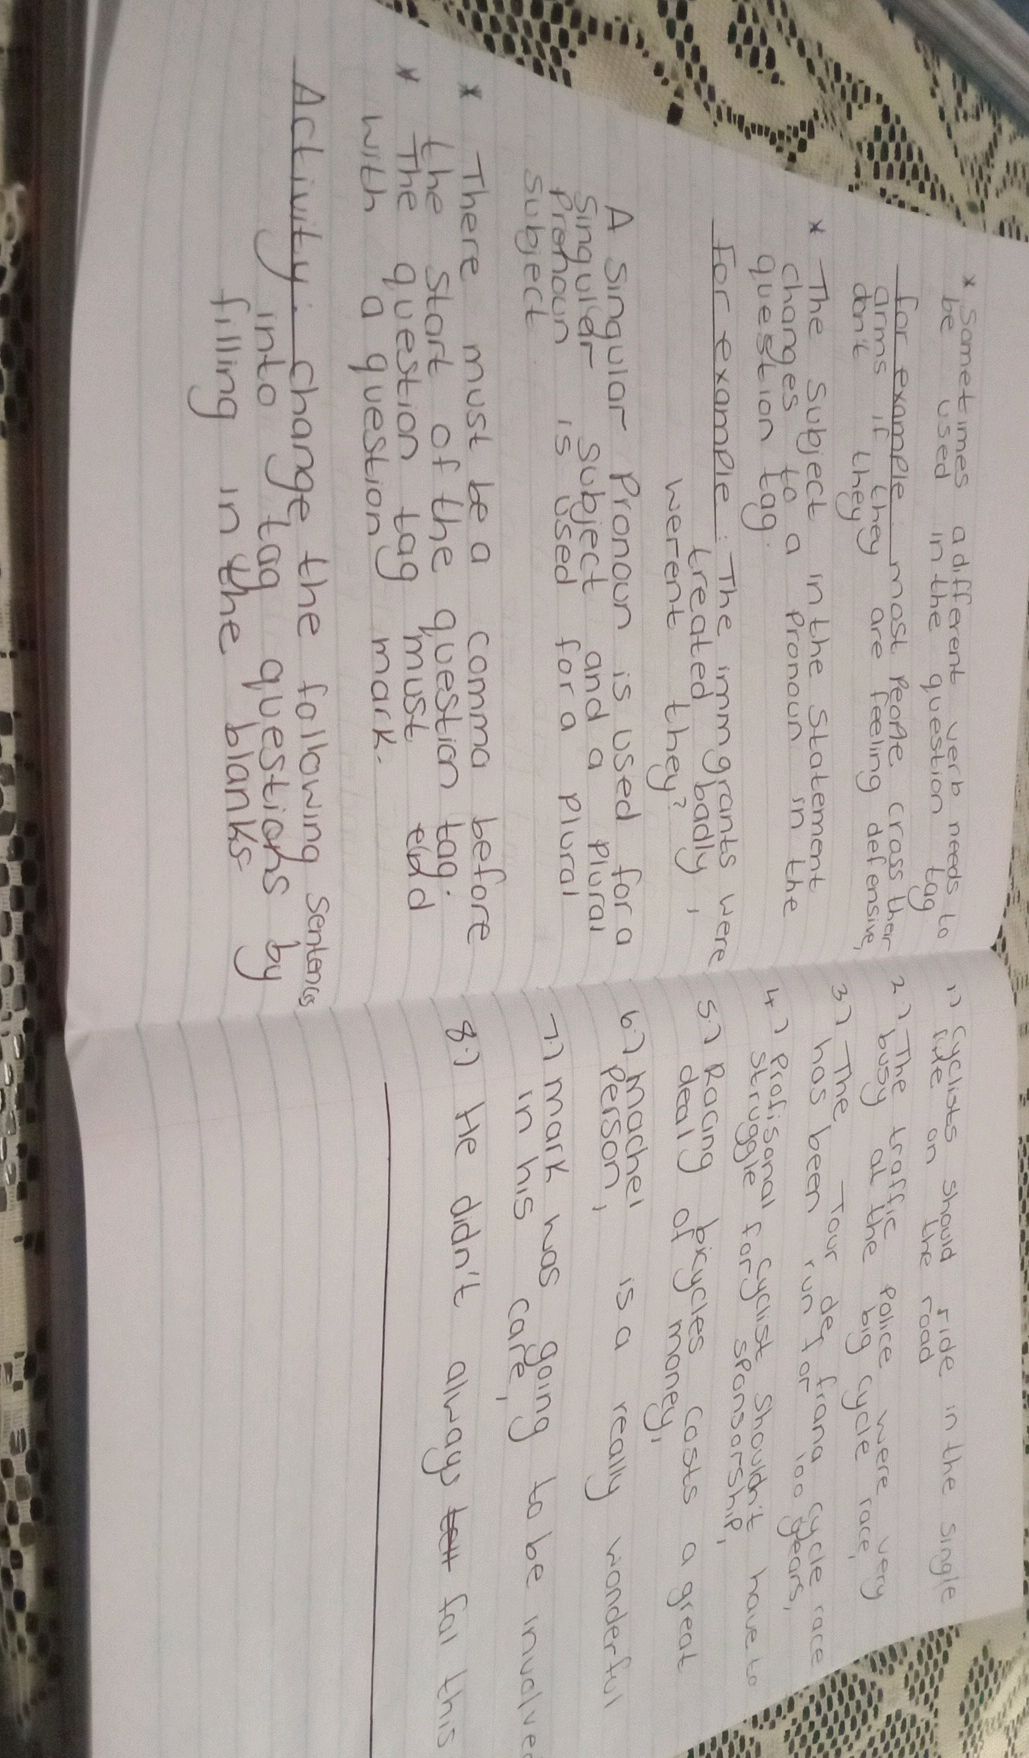 * Sometimes a different verb needs to
be used in the question tag
for example: most People cross ther
arms if they are feeling defensive,
don't they
* The subject in the statement
changes to a Pronoun in the
question tag.
For example: The immgrants were
treated badly,
werent they?
A singular Pronoun is used for a
singular subject and a plural
Pronoun is used for a plural
subject
* There must be a comma before
the start of the question tag.
* The question tag must end
with a question mark.
Activity: change the following sentences
into tag questions by
filling in the blanks
1) Cyclists should ride in the single
file on the road
2) The traffic Police were very
busy at the big cycle race,
3) The Tour de frana cycle race
has been run for 100 years,
4) Profisonal cyclist shouldn't have to
struggle for sponsorship,
5) Racing bicycles costs a great
deal of money,
6) Machel is a really wonderful
Person,
7) mark was going to be involve
in his care,
8.) He didn't always fal this